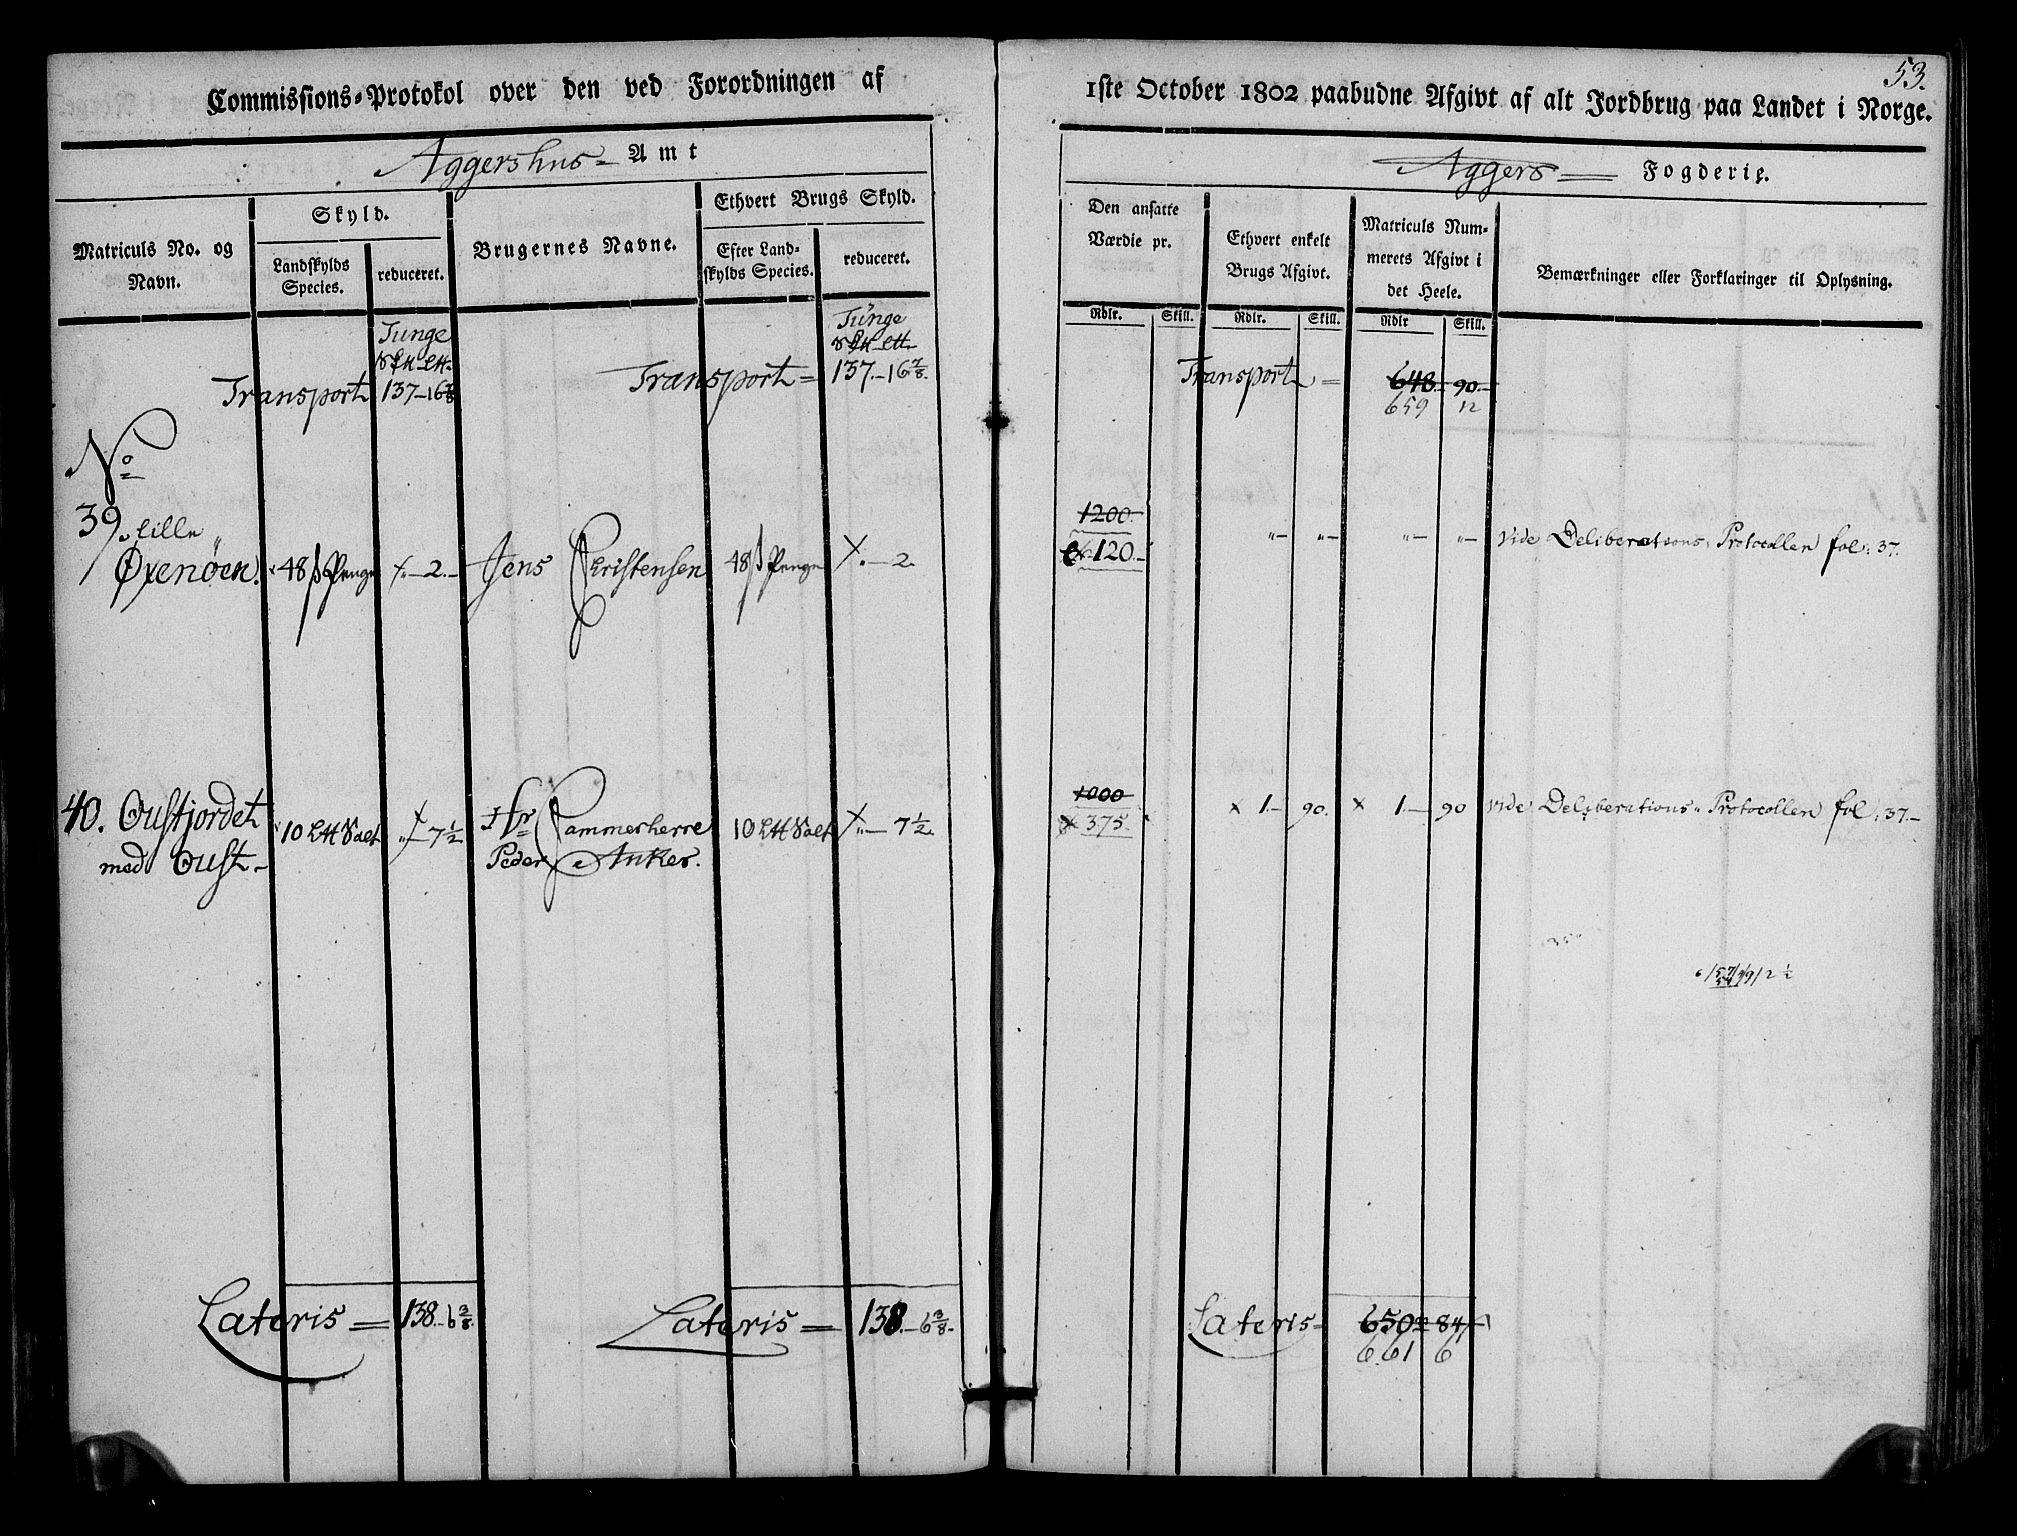 53.
Commissions-Protokol over den ved Forordningen af 1ste October 1802 paabudne Afgivt af alt Jordbrug paa Landet i Norge.
Aggershus Amt
Aggers Fogderie.
Matriculs No. og Navn.
Skyld.
Landskylds Species.
reduceret.
Brugernes Navne.
Ethvert Brugs Skyld.
Efter Landskylds Species.
reduceret.
Den ansatte Værdie pr.
Rdlr. Skill.
Ethvert enkelt Brugs Afgivt.
Rdlr. Skill.
Matriculs Nummerets Afgivt i det Heele.
Rdlr Skill.
Bemærkninger eller Forklaringer til Oplysning.
Tunge
Tunge
Transport 137-16 7/8 Transport = 137.-16 7/8. Transport = 648.- 90.-
659 12
No
39. Lille Øxenøen. 48 ß Penge -2.- Jens Christensen 48 ß Penge -2. 1200. 120.- "- "- "- "- vide Deliberations Protocollen fol: 37.
40. Oustjordet med Oust- 10 Ltt Salt "-7 1/2 Hr Cammerherre Peder Anker. 10 Ltt Salt "-7 1/2. 1000 375. × 1.- 90. × 1- 90 vide Deliberations Protocollen fol: 37.-
Lateris = 138.-6 3/8. Lateris = 138.-6 3/8.- Lateris- 650 84
661 6